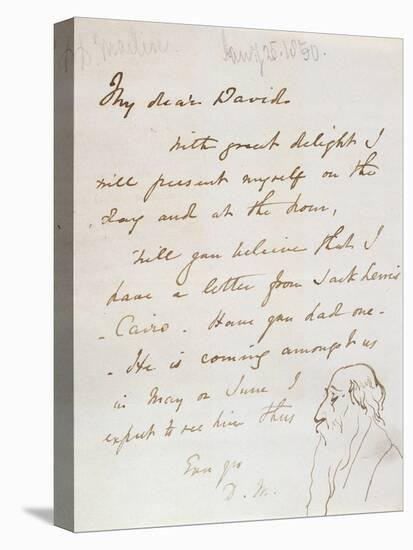 D. Maclise. Jany 25. 1850.
My dear David
With great delight I
will present myself on the
day and at the hour,
Will you believe that I
have a letter from Jack Lewis
- Cairo - Have you had one -
- He is coming amongst us
in May or June I
expect to see him thus
Ever yrs
D. M.